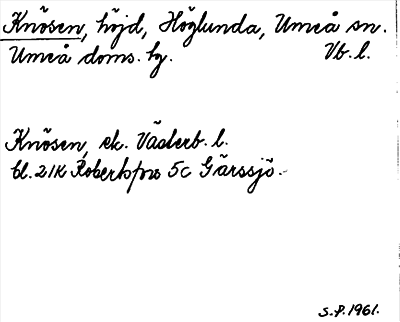 Knösen, höjd, Höglunda, Umeå sn.
Umeå doms. hg. Vb. l.
Knösen, ek. Västerb. l.
bl. 21K Robertsfors 5c Gärssjö.
S.P. 1961.